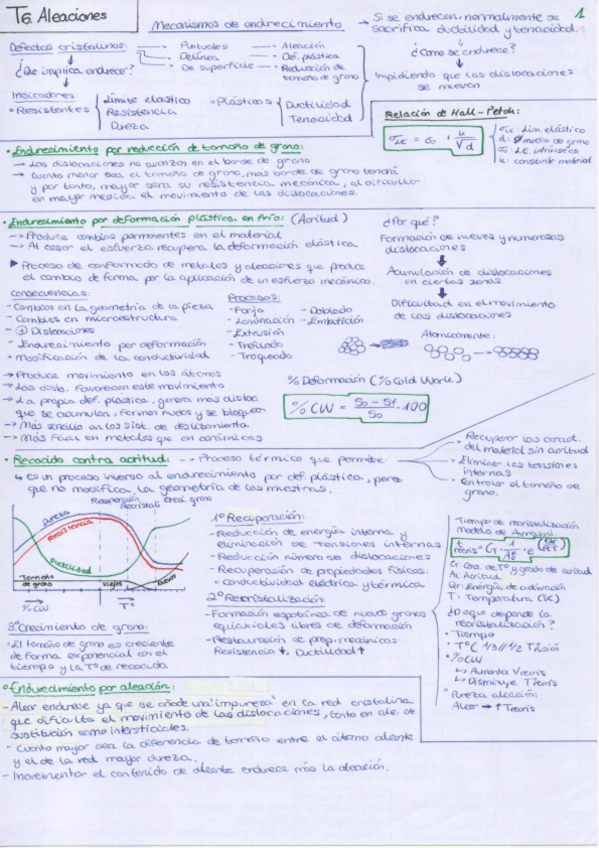 T6. Aleaciones
1
Mecanismos de endurecimiento
→ Si se endurecen, normalmente se
sacrifica ductilidad y tenacidad.
Defectos cristalinos:
- Puntuales → Aleación
- De línea → Def. plástica
- De superficie → Reducción de
tamaño de grano
¿Cómo se endurece?
Impidiendo que las dislocaciones
se muevan
¿Que implica endurecer?
Indicadores:
° Resistentes
Límite elastico
Resistencia
Dureza
° Plásticos
Ductilidad
Tenacidad
Relación de Hall-Petch:
σLE = σo + k/√d
σLE: Lim. elástico
d: Ø medio de grano
σo: L.E. intrínseco
k: constante material
• Endurecimiento por reducción de tamaño de grano:
→ Las dislocaciones no avanzan en el borde de grano
→ Cuanto menor sea el tamaño de grano, mas borde de grano tendrá
y por tanto, mayor será su resistencia mecánica, al dificultar
en mayor medida el movimiento de las dislocaciones.
• Endurecimiento por deformación plástica en frío: (Acritud)
→ Produce cambios permanentes en el material
→ Al cesar el esfuerzo, recupera la deformación elástica
► Proceso de conformado de metales y aleaciones que produce
el cambio de forma por la aplicación de un esfuerzo mecánico.
¿Por qué?
Formación de nuevas y numerosas
dislocaciones
Acumulación de dislocaciones
en ciertas zonas
Dificultad en el movimiento
de las dislocaciones
Consecuencias:
- Cambios en la geometría de la pieza
- Cambios en microestructura
- ⊕ Dislocaciones
- Endurecimiento por deformación
- Modificación de la conductividad
Procesos:
- Forja
- Laminación
- Extrusión
- Trefilado
- Troquelado
- Doblado
- Embutición
Atómicamente:
→ Produce movimiento en los átomos
→ Las dislo. favorecen este movimiento
→ La propia def. plástica, genera más disloc
que se acumulan, forman nudos y se bloquean
→ Más sencillo en los sist. de deslizamiento.
→ Más fácil en metales que en cerámicas
% Deformación (% Cold Work)
% CW = So - Sf / So · 100
• Recocido contra acritud: → Proceso térmico que permite:
• Recuperar las caract.
del material sin acritud
• Eliminar las tensiones
internas
• Controlar el tamaño de
grano.
↳ Es un proceso inverso al endurecimiento por def. plástica, pero
que no modifica la geometría de las muestras.
Recuperación
Recristali
Creci. grano
Dureza
Resistencia
Ductilidad
Tamaño
de grano
Viejos
Nuevos
% CW
T°
1° Recuperación:
- Reducción de energía interna y
eliminación de tensiones internas
- Reducción número de dislocaciones
- Recuperación de propiedades físicas:
° conductividad eléctrica y térmica
2° Recristalización:
- Formación espotánea de nuevos granos
equiaxiales libres de deformación
- Restauración de prop. mecánicas:
Resistencia ↓, Ductilidad ↑
3° Crecimiento de grano:
• El tamaño de grano es creciente
de forma exponencial con el
tiempo y la T° de recocido
Tiempo de recristalización
Modelo de Avrami
Cr: Cons. de T° y grado de acritud
A: Acritud
Qr: Energía de activación
T: Temperatura (K)
¿D eque depende la
recristalización?
• Tiempo
• T°C 1/3 1/2 T°fusión
• % CW
↳ Aumenta Vrecris
↳ Disminuye Trecris
° Pureza aleación:
Alear → ↑ Trecris
• Endurecimiento por aleación:
- Alear endurece ya que se añade una 'impureza' en la red cristalina
que dificulta el movimiento de las dislocaciones, tanto en ale. de
sustitución como intersticiales.
- Cuanto mayor sea la diferencia de tamaño entre el átomo aleante
y el de la red mayor dureza.
- Incrementar el contenido de aleante endurece más la aleación.